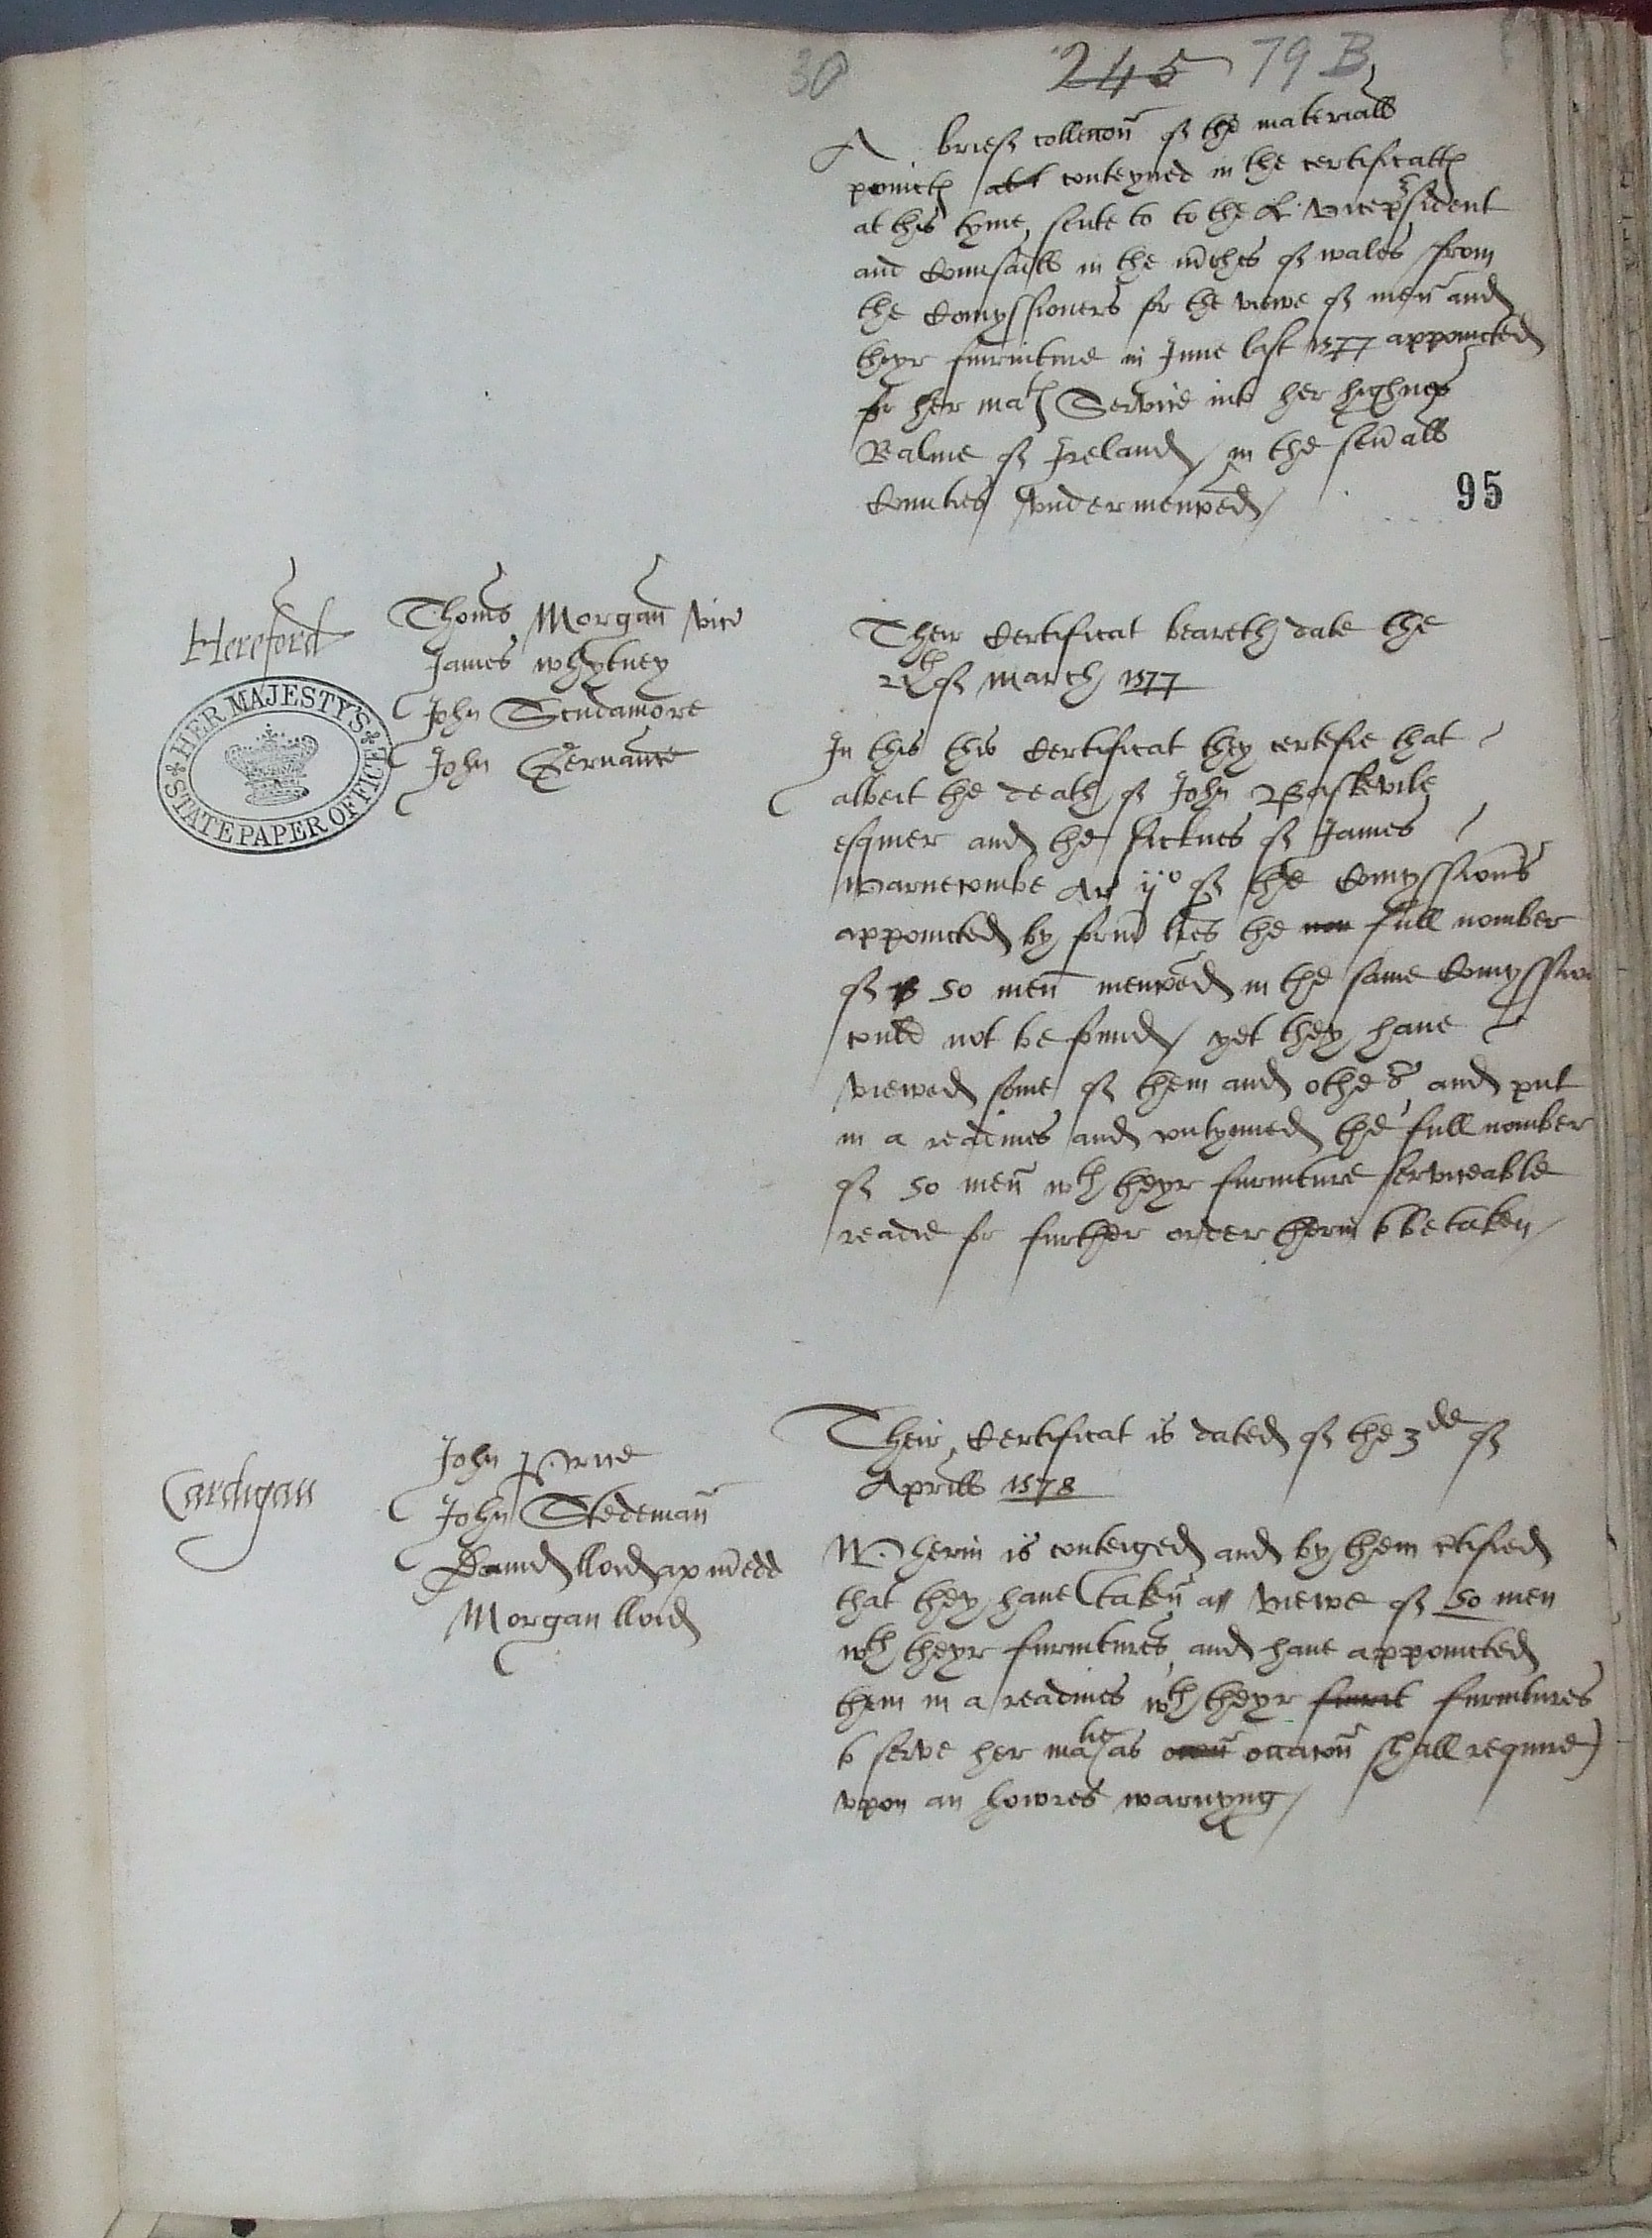 30 245 79 B
A brief colleccon of the materiall
poinctes conteyned in the certificattes
at this tyme sente to to the L. vicepresident
and Counsaill in the mches of wales from
the Comyssioners for the viewe of men and
theyr furniture in June last 1577 appoincted
for her mats Service into her highnes
Realme of Ireland in the seuall
Counties vndermenced
95
Hereford
Thoms Morgan vice
James whytney
John Scudamore
John
HER MAJESTY'S STATE PAPER OFFICE
Their Certificat beareth date the
of march 1577
In this this Certificat they certefie that
albeit the death of John Baskevile
esquier and the sicknes of James
Warnecombe Ar ijo of the Comyssions
appoincted by form lres the full nomber
of 50 men menced in the same Comyssion
could not be found yet they haue
viewed some of them and others and put
in a readines and the full nomber
of 50 men wth theyr furniture serviceable
readie for further order herin to be taken
Cardigan
John
John Stedeman
Dauid lloid ap
Morgan lloid
Their Certificat is dated of the 3de of
Aprill 1578
Wherin is conteigned and by them ctified
that they haue taken a viewe of 50 men
wth theyr furnitures and haue appoincted
them in a readines wth theyr furnitures
to serve her matie as occacon shall require
vpon an howres warnyng